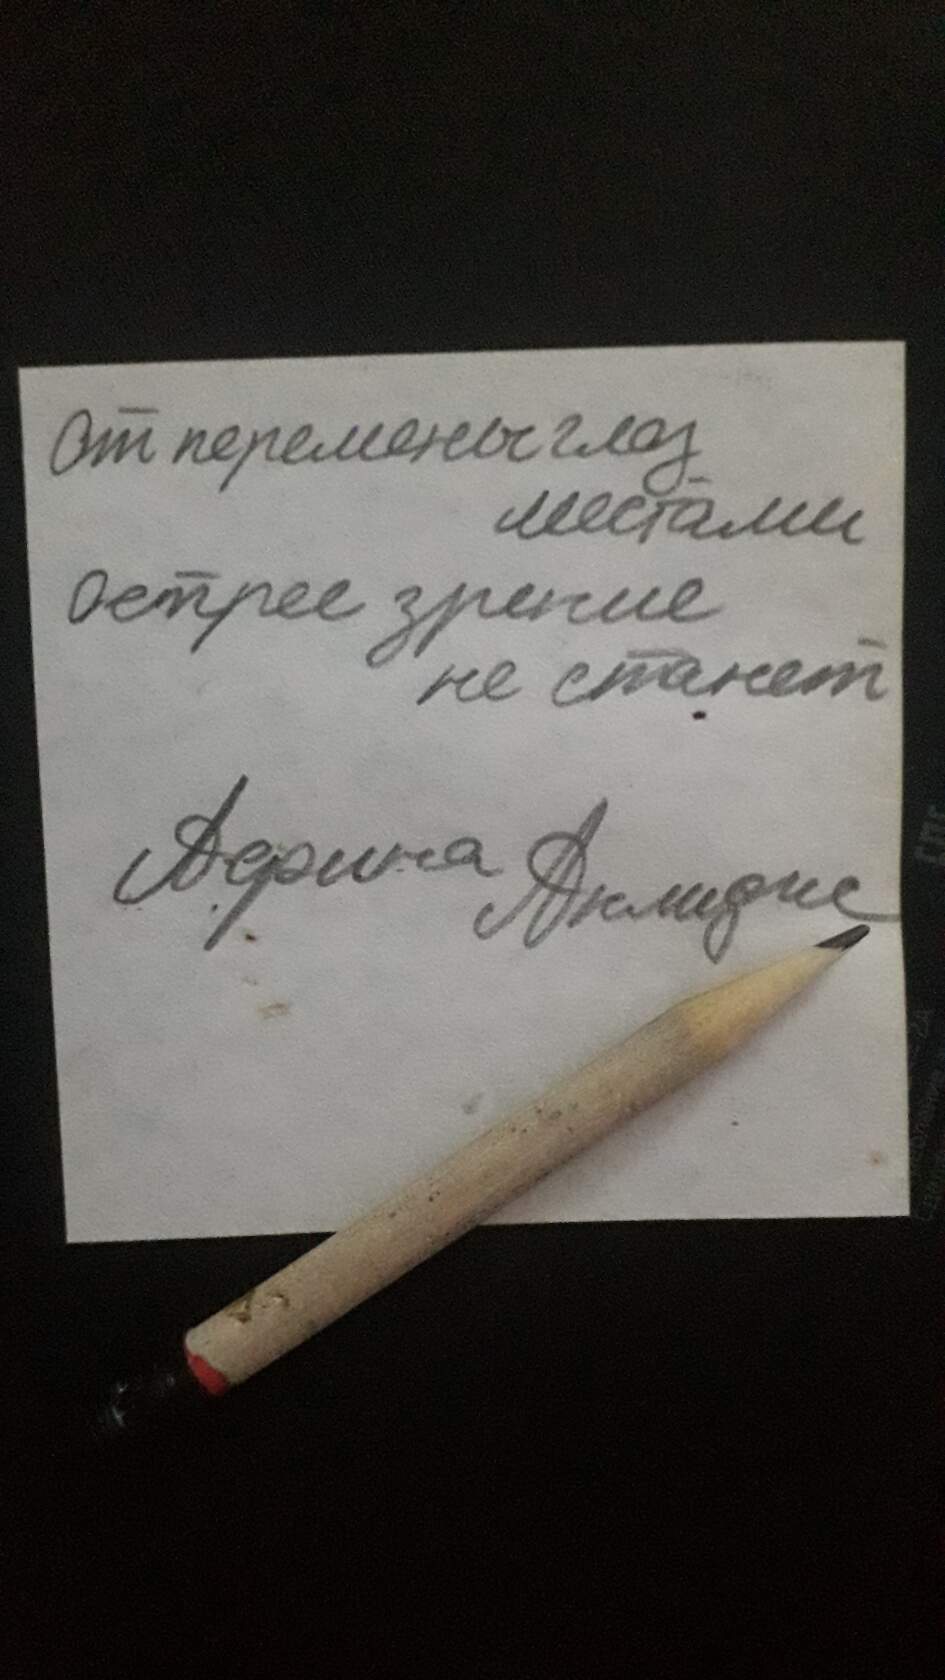 От перемены глаз
местами
Острее зрение
не станет
Аерина